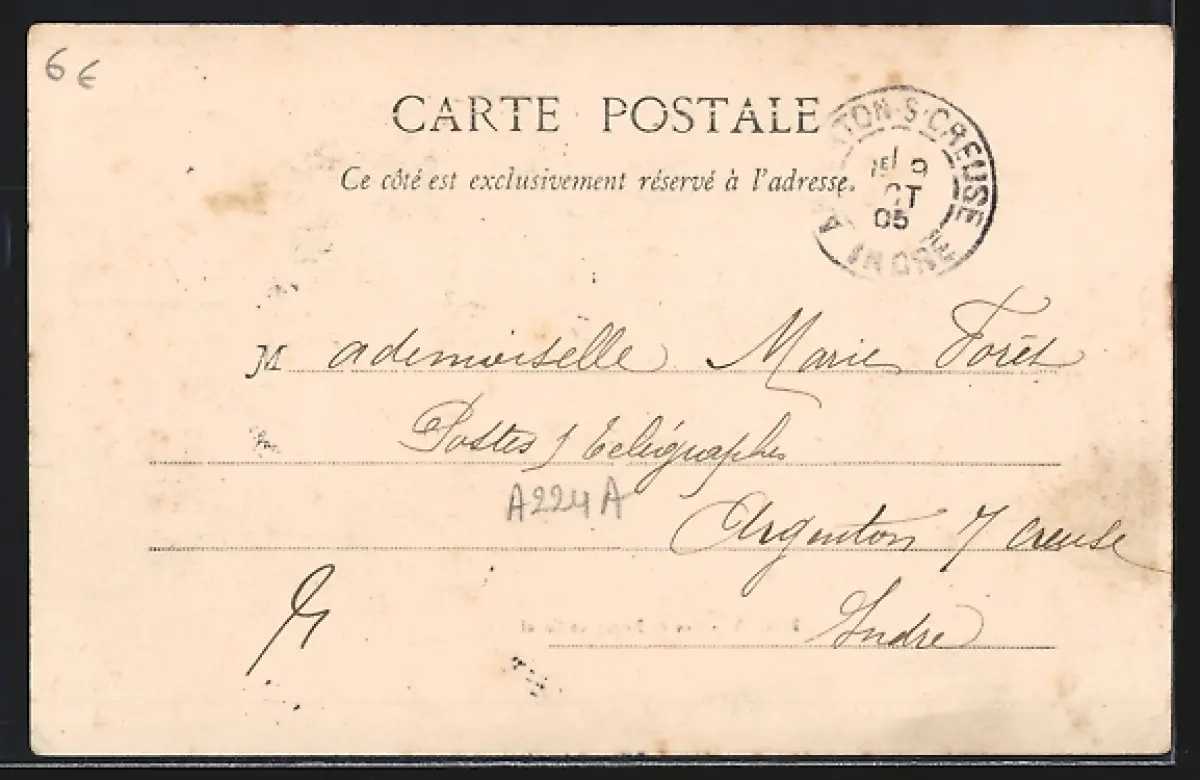 6 €
CARTE POSTALE
Ce côté est exclusivement réservé à l'adresse.
TON-S-CREUSE
1E 9
OT
05
INDRE
Mademoiselle Marie Forêt
Postes / Télégraphes
A224A
Argenton s/ creuse
Indre